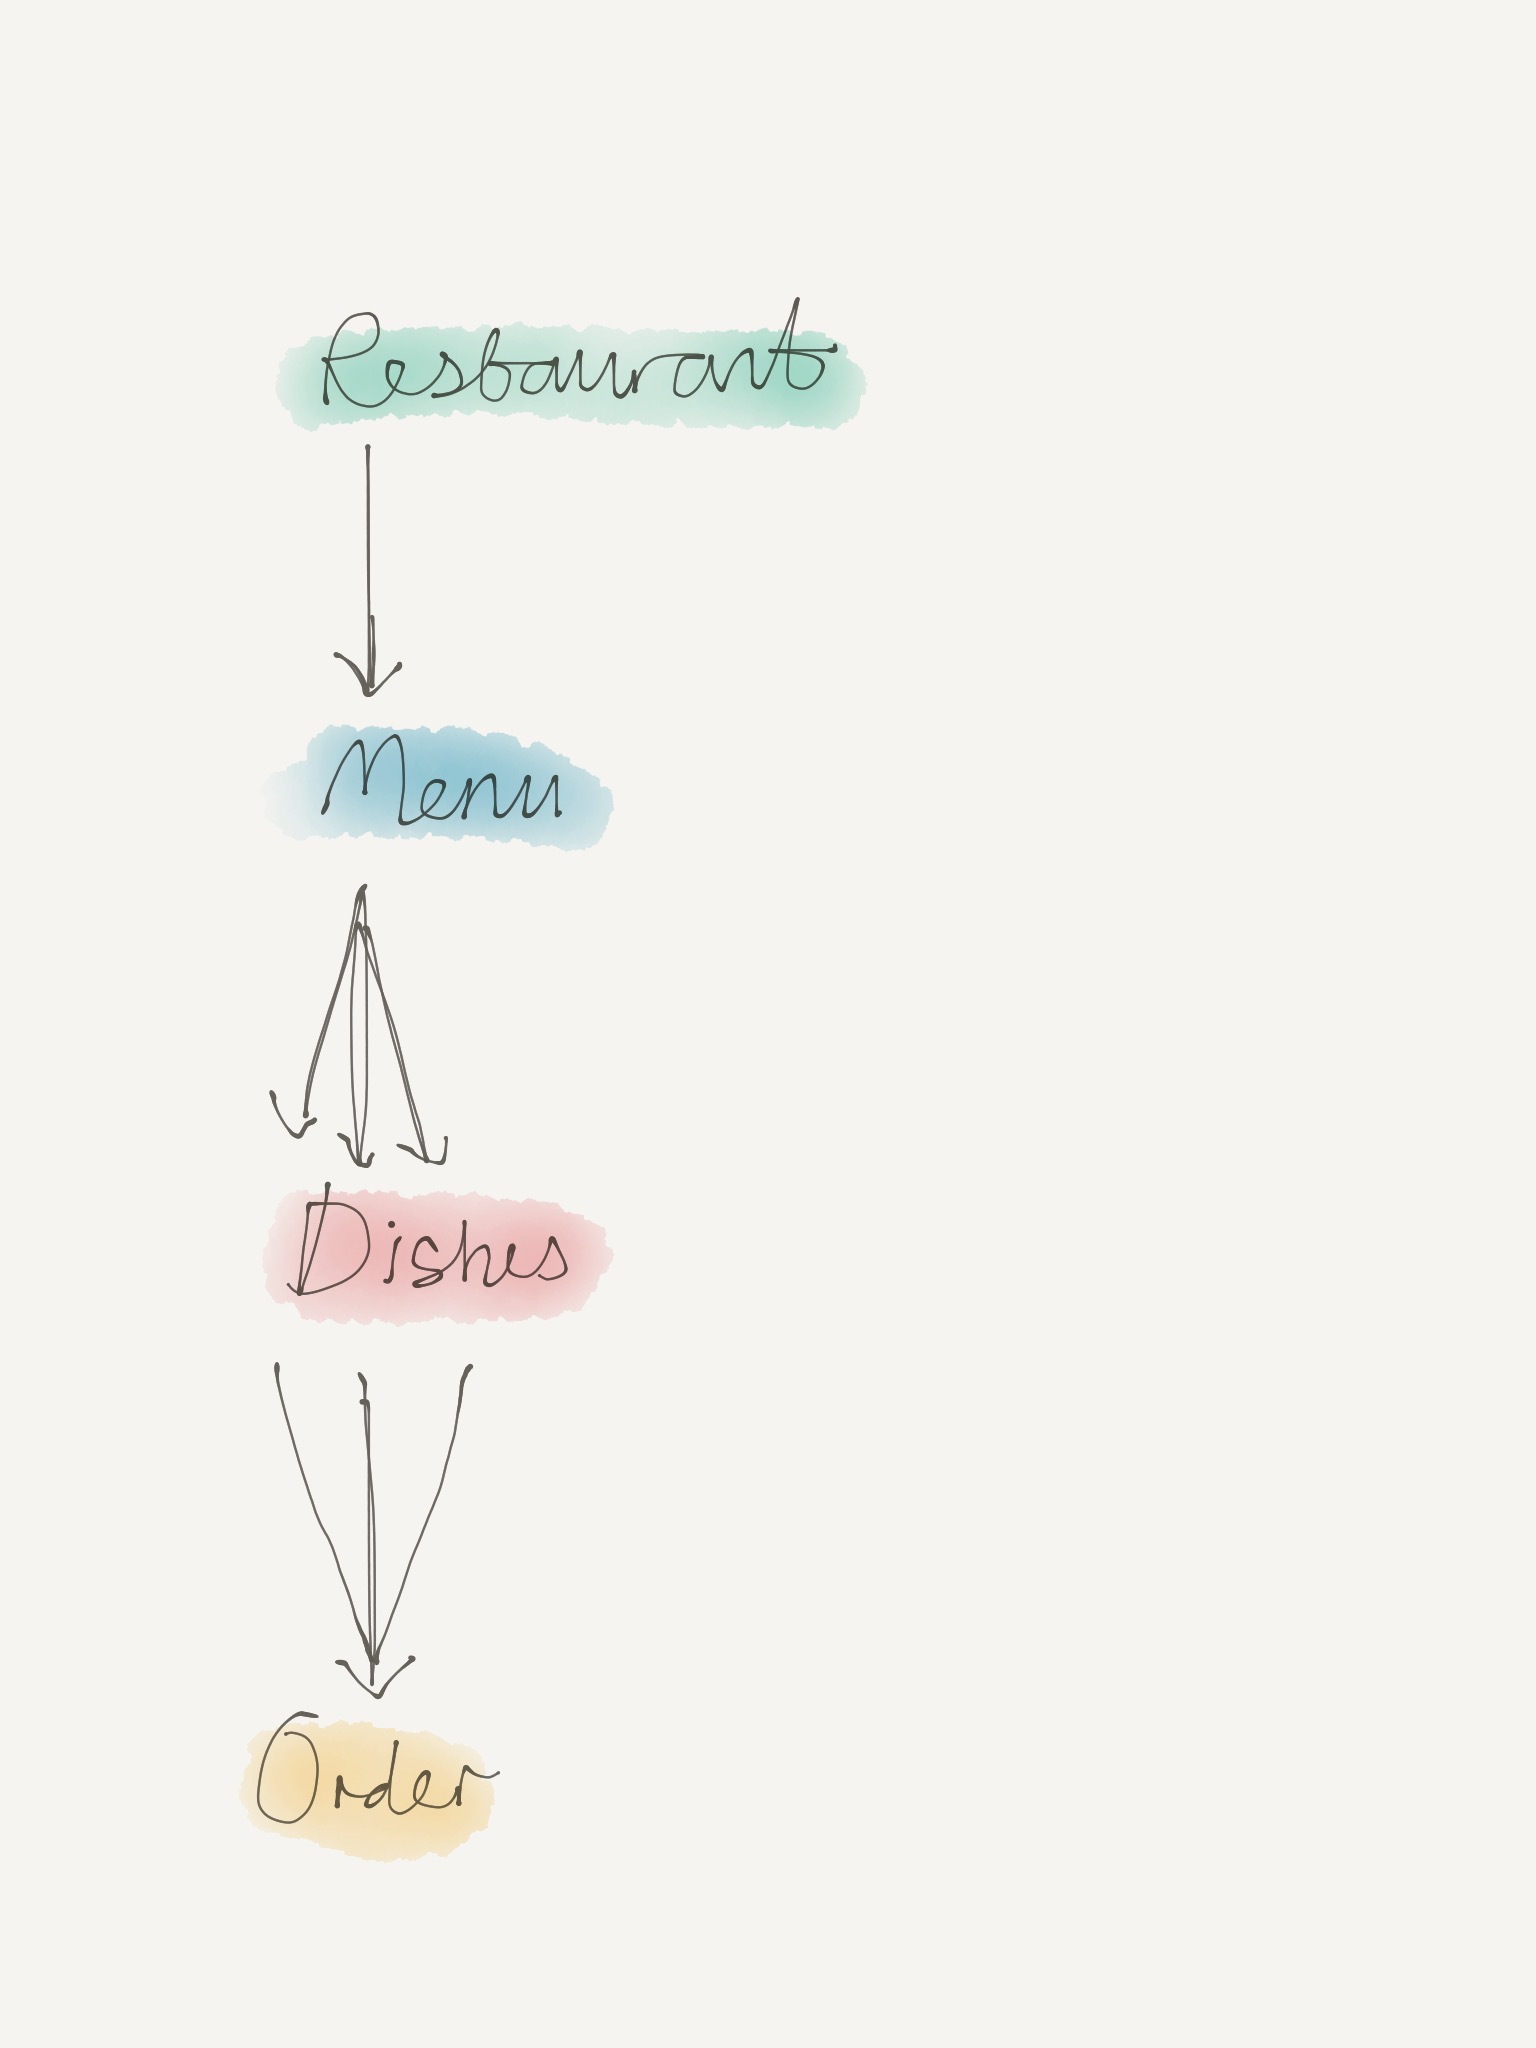 Restaurant
Menu
Dishes
Order